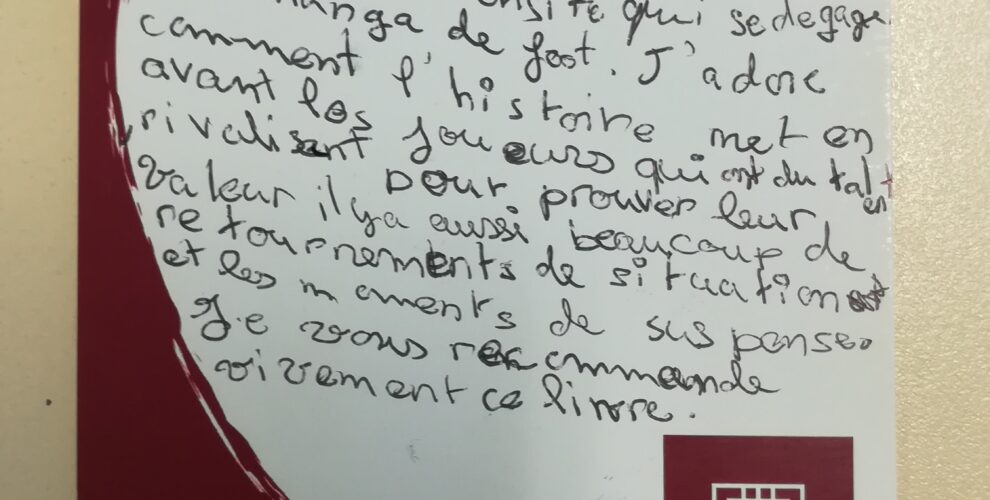 qui se dégage
manga de foot. J'adore
comment l'histoire met en
avant les joueurs qui ont du talent
rivalisant pour prouver leur
valeur il y a aussi beaucoup de
retournements de situation
et les moments de suspense.
Je vous recommande
vivement ce livre.